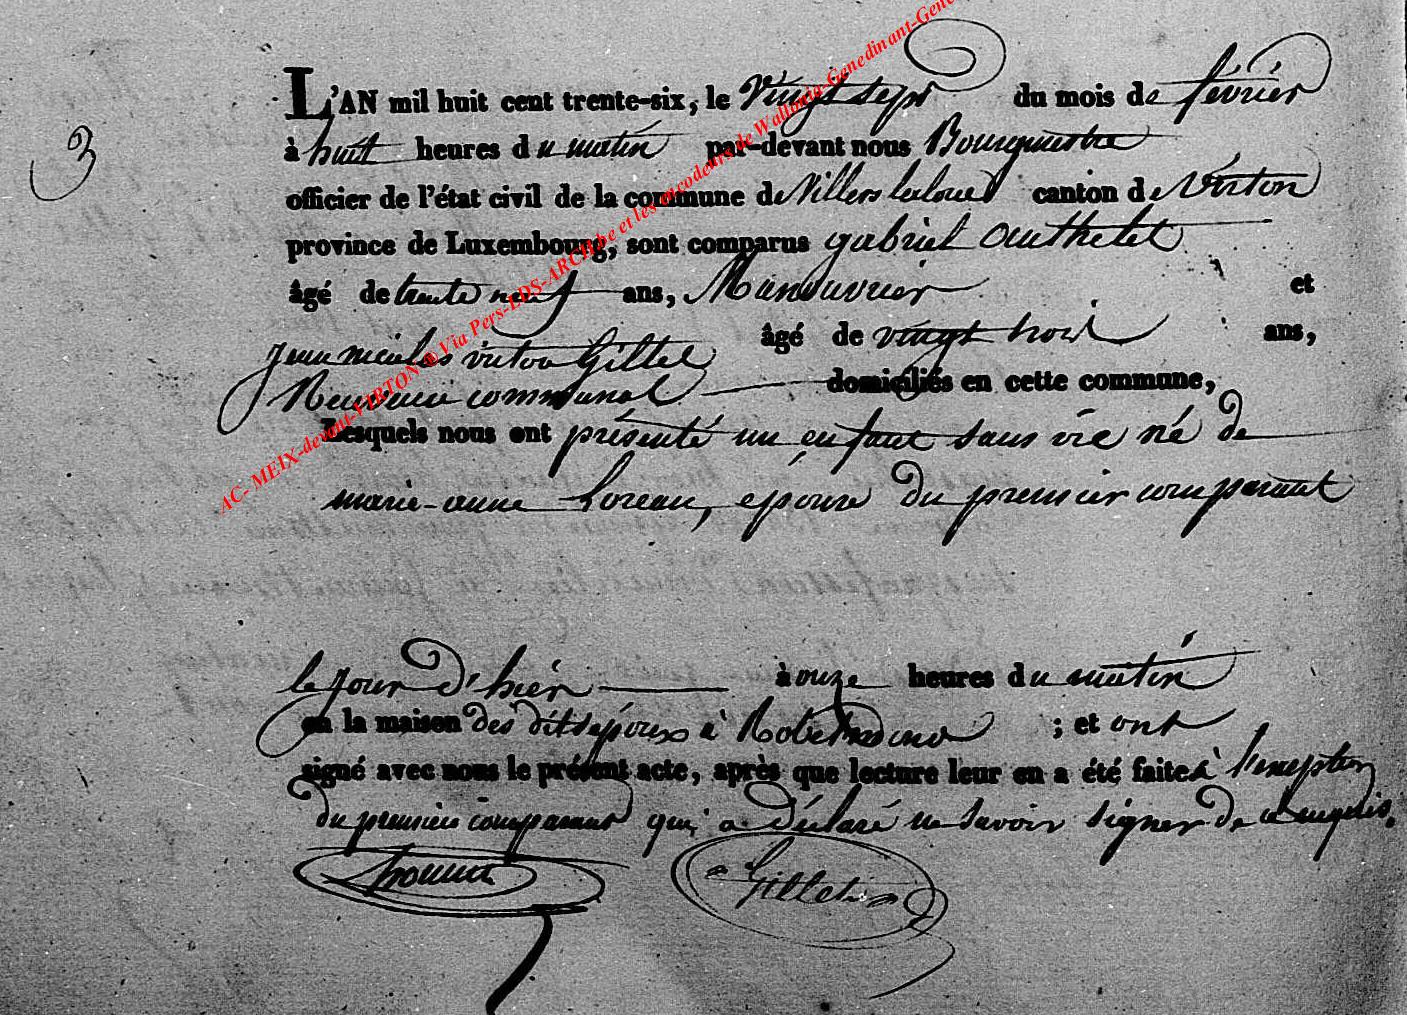 3
L'AN mil huit cent trente-six, le Vingt sept du mois de février
à huit heures du matin par-devant nous Bourgmestre
officier de l'état civil de la commune de Villers laloue canton de Virton
province de Luxembourg, sont comparus gabriel Outhelet
âgé de trente neuf ans, Manouvrier et
Jean nicolas victor Gillet âgé de vingt trois ans,
Receveur communal domiciliés en cette commune,
Lesquels nous ont présenté un enfant sans vie né de
marie-anne Loreau, epouse du premier comparant
le jour d'hièr à onze heures du matin
en la maison des dits époux à Robelmont ; et ont
signé avec nous le présent acte, après que lecture leur en a été faite à l'exception
du premier comparant qui a déclaré ne savoir signer de ce enquis.
Gillet
AC- MEIX-devant-VIRTON © Via Pers-EDS-ARCH.be et les encodeurs de Wallonia-Genedinant-Gene